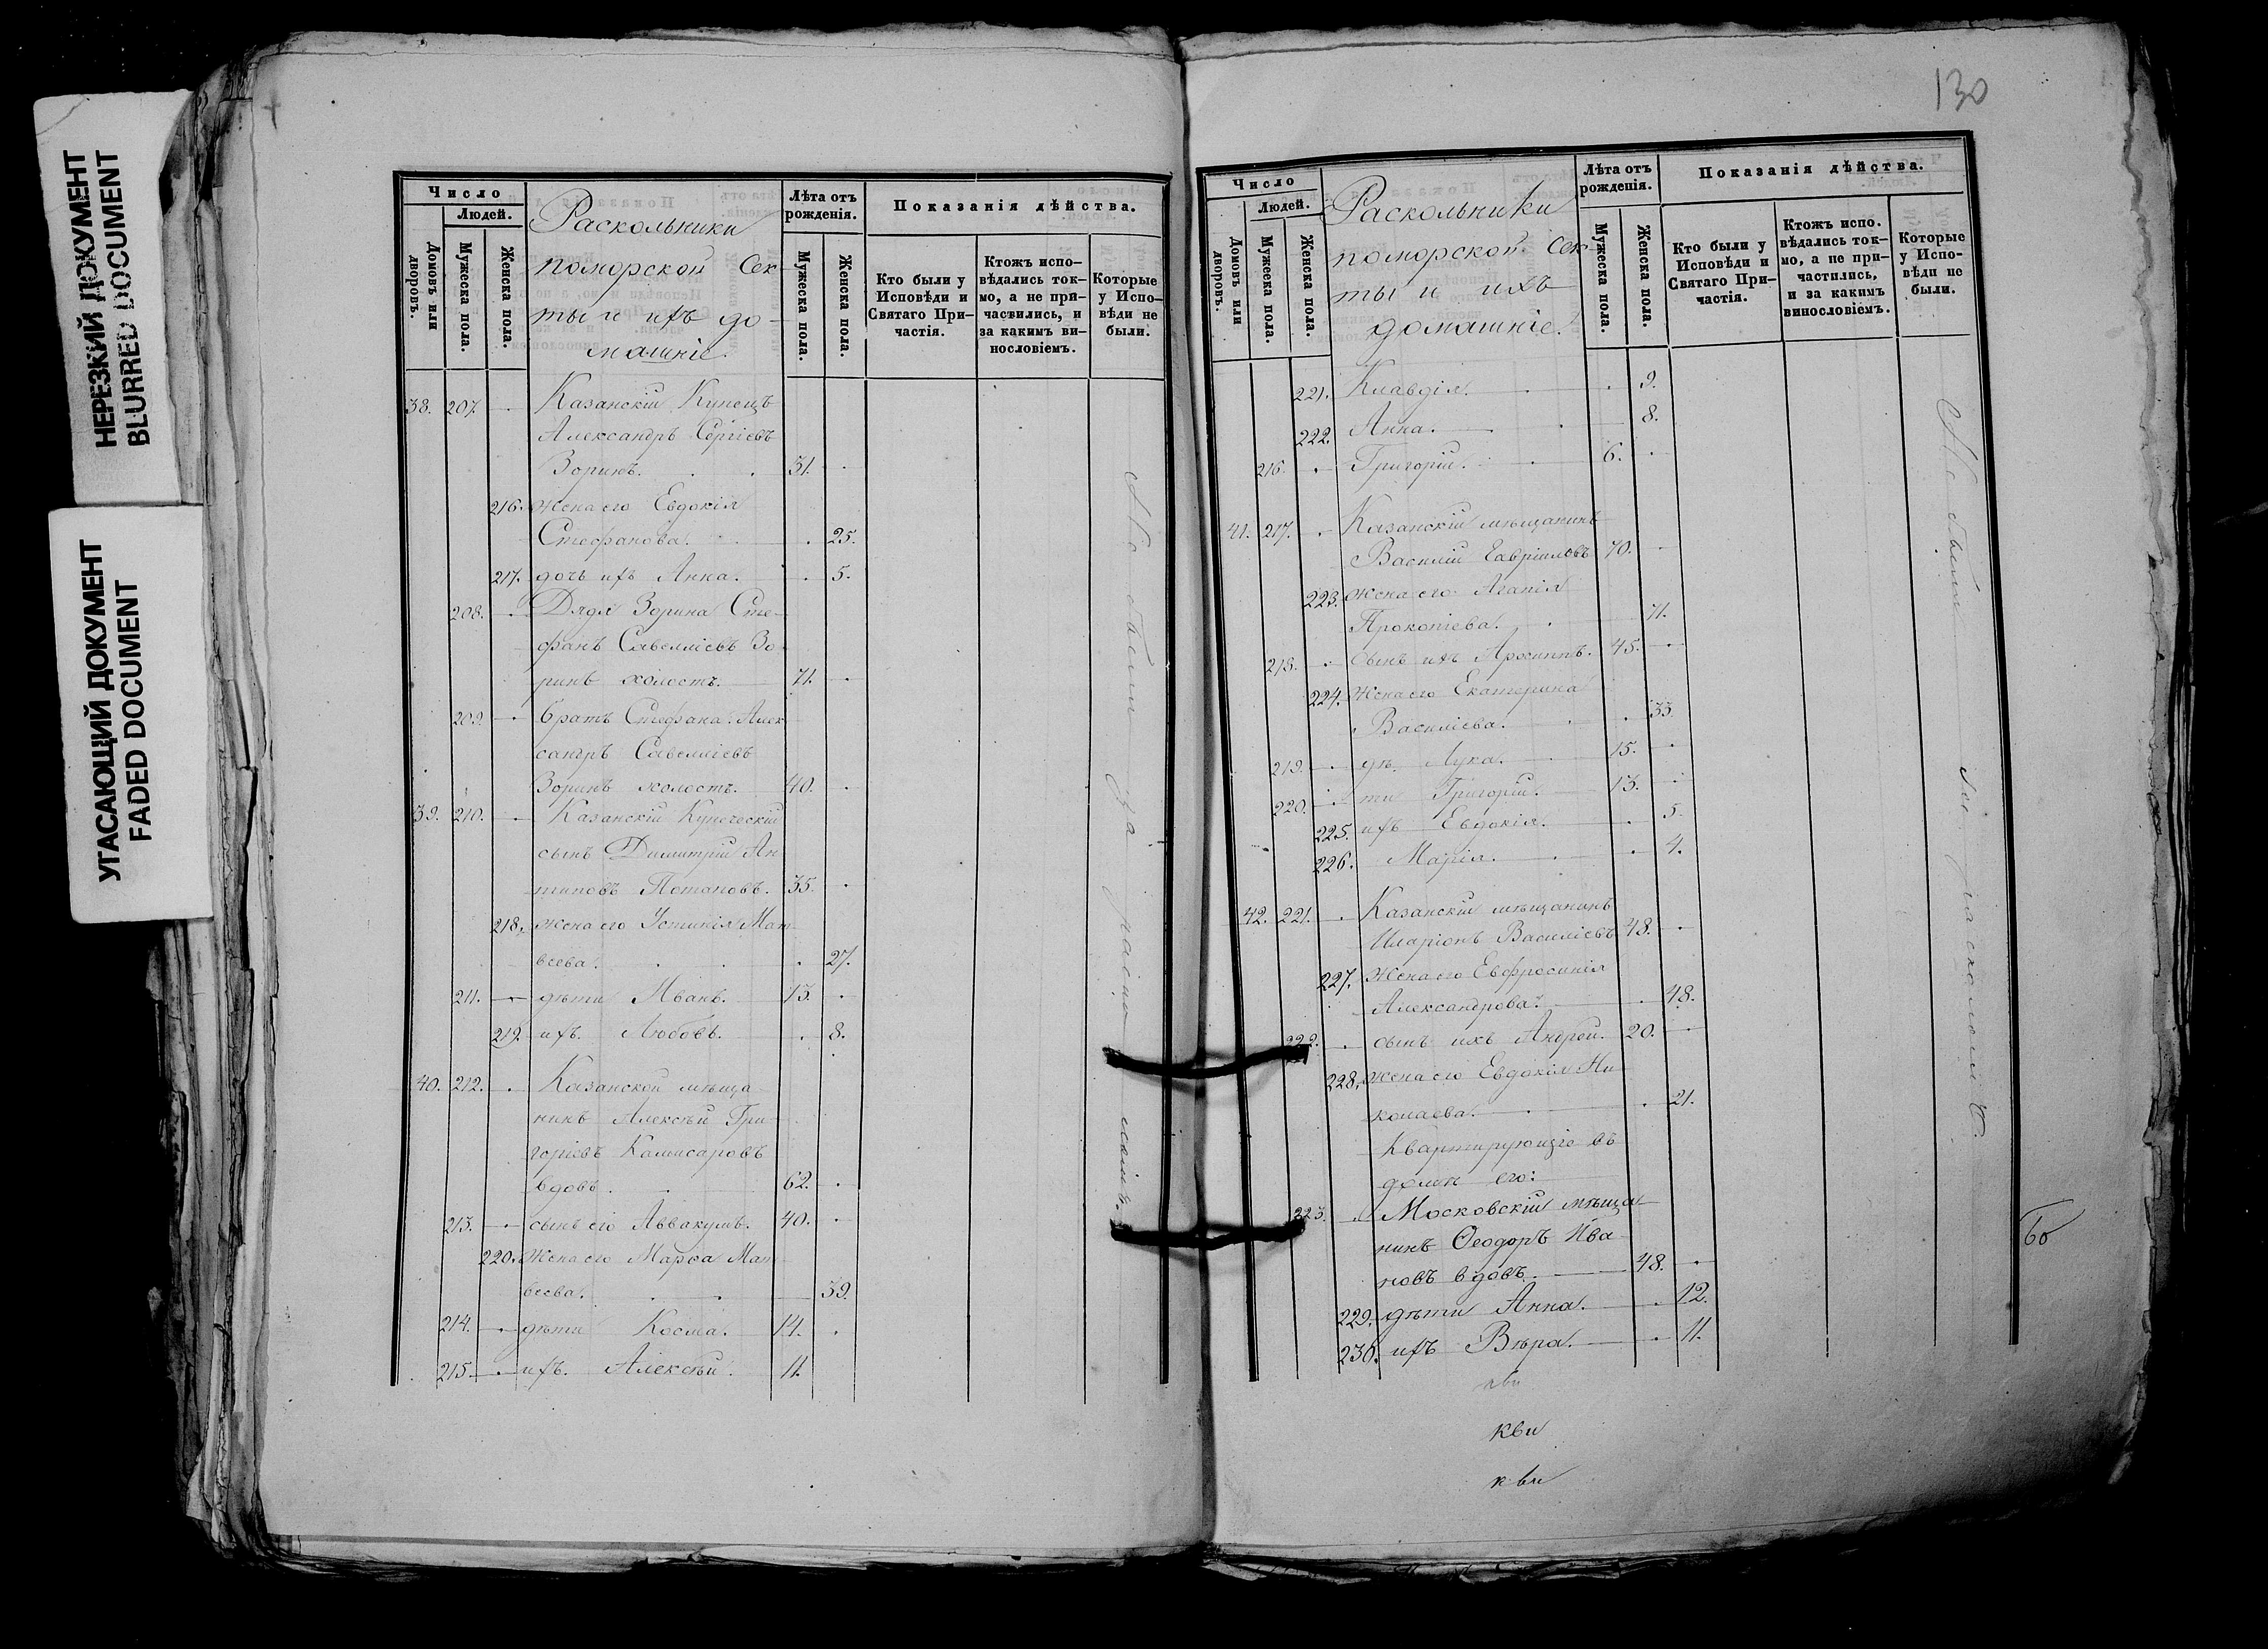 НЕРЕЗКИЙ ДОКУМЕНТ
BLURRED DOCUMENT
УГАСАЮЩИЙ ДОКУМЕНТ
FADED DOCUMENT
Число
Людей.
Домовъ или дворовъ.
Мужеска пола.
Женска пола.
Раскольники
поморской сек-
ты и ихъ до-
машніе.
Лѣта отъ рожденія.
Мужеска пола.
Женска пола.
Показанія дѣйства.
Кто были у Исповѣди и Святаго При-
частія.
Ктожъ испо-
вѣдались ток-
мо, а не при-
частились, и
за какимъ ви-
нословіемъ.
Которые
у Испо-
вѣди не
были.
38. 207. Казанскій Купецъ
Александръ Сергіевъ
Зоринъ. 31.
216. жена его Евдокія
Стефанова. 25.
217. дочь ихъ Анна. 5.
208. Дядя Зорина Сте-
фанъ Савелліевъ Зо-
ринъ холостъ. 71.
209. братъ Стефана Алек
сандръ Савелліевъ
Зоринъ холостъ. 40.
39. 210. Казанскій Купеческій
сынъ Димитрій Ан
типовъ Потаповъ. 35.
218. жена его Устинія Мат
веева. 27.
211. дѣти Иванъ. 13.
219. ихъ. Любовь. 8.
40. 212. Казанской мѣща
нинъ Алексѣй Гри
горіевъ Камисаровъ
вдовъ. 62.
213. сынъ его Аввакумъ. 40.
220. жена его Марѳа Мат
веева. 39.
214. дѣти Косма. 14.
215. ихъ. Алексѣй. 11.
Не были за раско
ломъ.
130
Число
Людей.
Домовъ или дворовъ.
Мужеска пола.
Женска пола.
Раскольники
поморской сек-
ты и ихъ
домашніе.
Лѣта отъ
рожденія.
Мужеска пола.
Женска пола.
Показанія дѣйства.
Кто были у
Исповѣди и
Святаго При-
частія.
Ктожъ испо-
вѣдались ток-
мо, а не при-
частились,
и за какимъ
винословіемъ.
Которые
у Испо-
вѣди не
были.
221. Клавдія. 9.
222. Анна. 8.
216. Григорій. 6.
41. 217. Казанскій мѣщанинъ
Василій Гавріиловъ 70.
223. жена его Агапія
Прокопіева. 71.
218. сынъ ихъ Архиппъ. 45.
224. жена его Екатерина
Василіева. 33.
219. дѣ Лука. 15.
220. ти Григорій. 13.
225. ихъ Евдокія. 5.
226. Марія. 4.
42. 221. Казанскій мѣщанинъ
Иларіонъ Василіевъ 48.
227. жена его Евфросинія
Александрова. 48.
222. сынъ ихъ Андрей. 20.
228. жена его Евдокія Ни
колаева. 21.
Квартирующіе въ
домѣ его:
223. Московскій мѣща
нинъ Ѳеодоръ Ива
новъ вдовъ. 48.
229. дѣти Анна. 12.
230. ихъ Вѣра. 11.
Не были
расколомъ.
кви
кви
кви